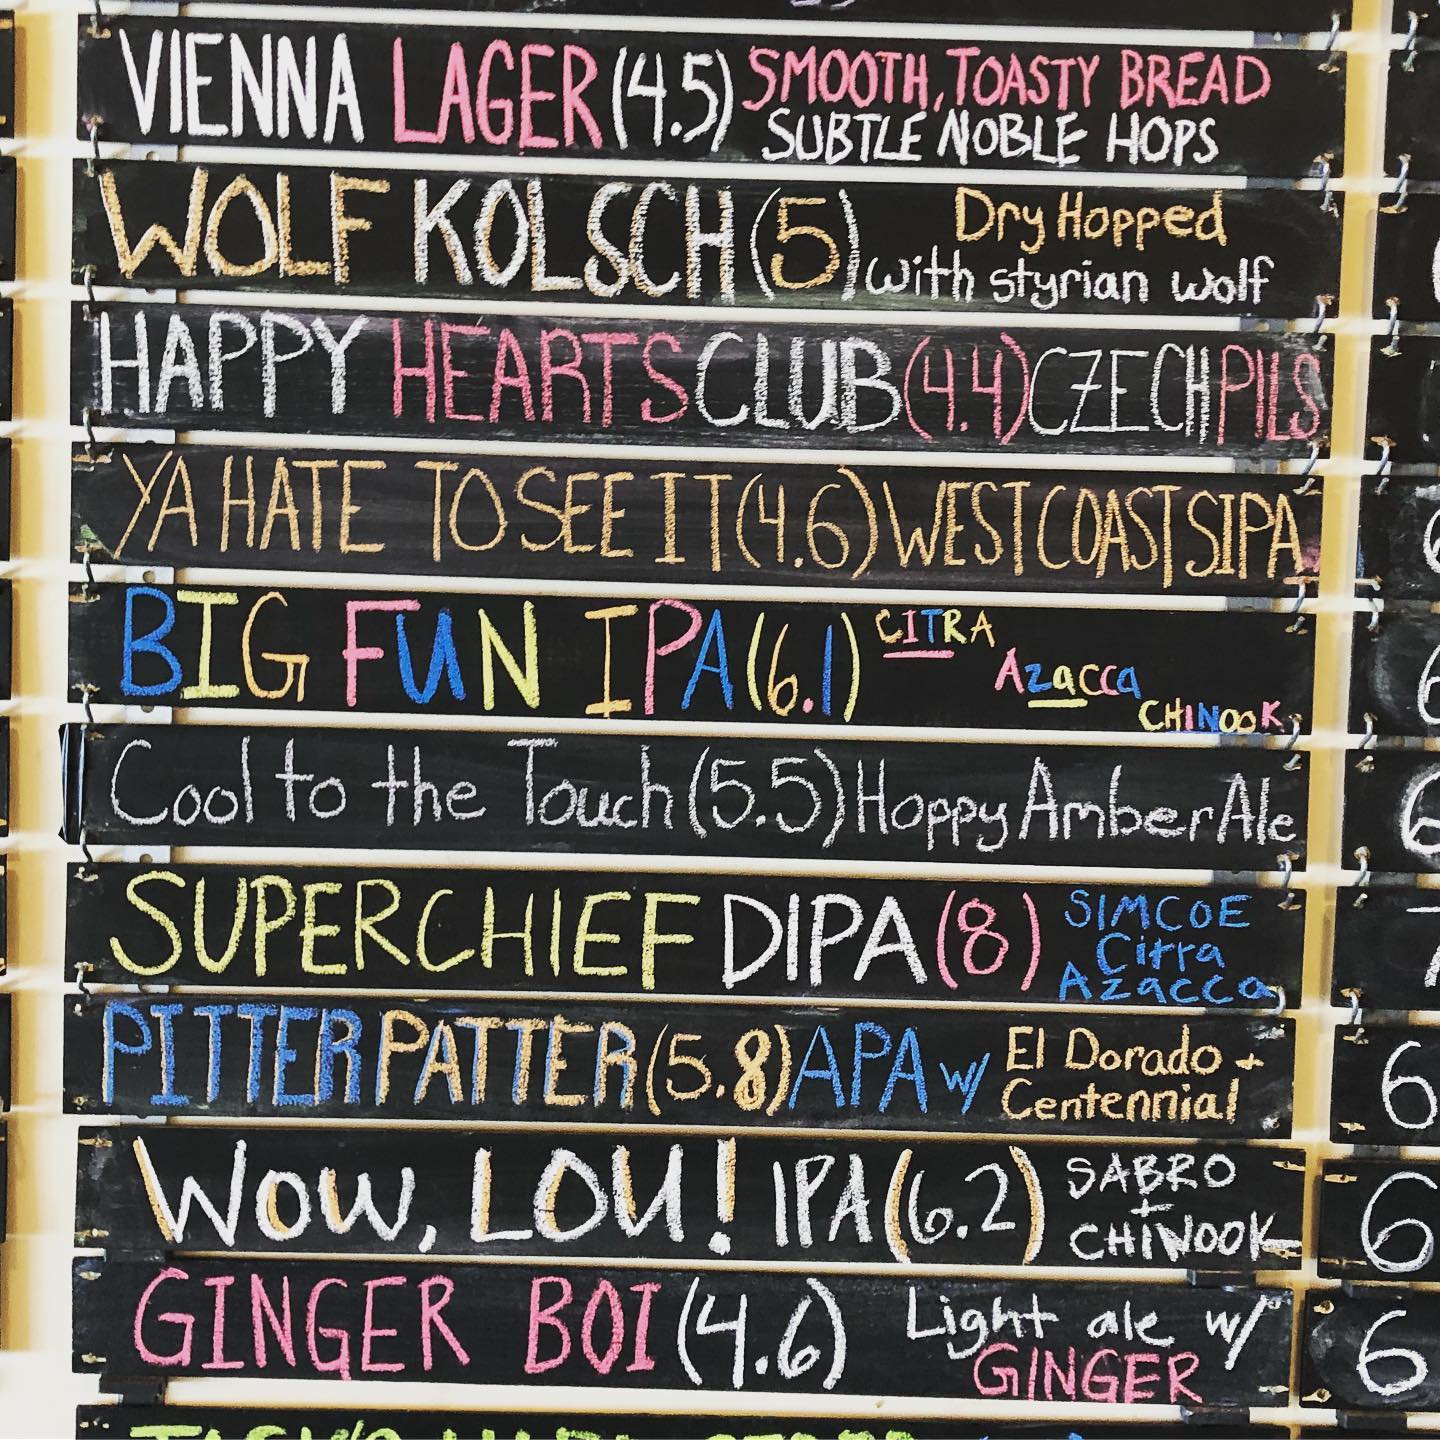 VIENNA LAGER (4.5) SMOOTH, TOASTY BREAD
SUBTLE NOBLE HOPS
WOLF KOLSCH (5) Dry Hopped
with styrian wolf
HAPPY HEARTS CLUB (4.4) CZECH PILS
YA HATE TO SEE IT (4.6) WEST COAST SIPA
BIG FUN IPA (6.1) CITRA
Azacca
CHINOOK
Cool to the Touch (5.5) Hoppy Amber Ale
SUPERCHIEF DIPA (8) SIMCOE
Citra
Azacca
PITTER PATTER (5.8) APA w/ El Dorado +
Centennial
WOW, LOU! IPA (6.2) SABRO
+
CHINOOK
GINGER BOI (4.6) Light ale w/
GINGER
6
6
6